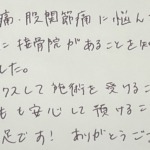 痛・股関節痛に悩ん
に接骨院があることを知
した。
クスして施術を受けるこ
も安心して預けるこ
足です！ありがとうござ